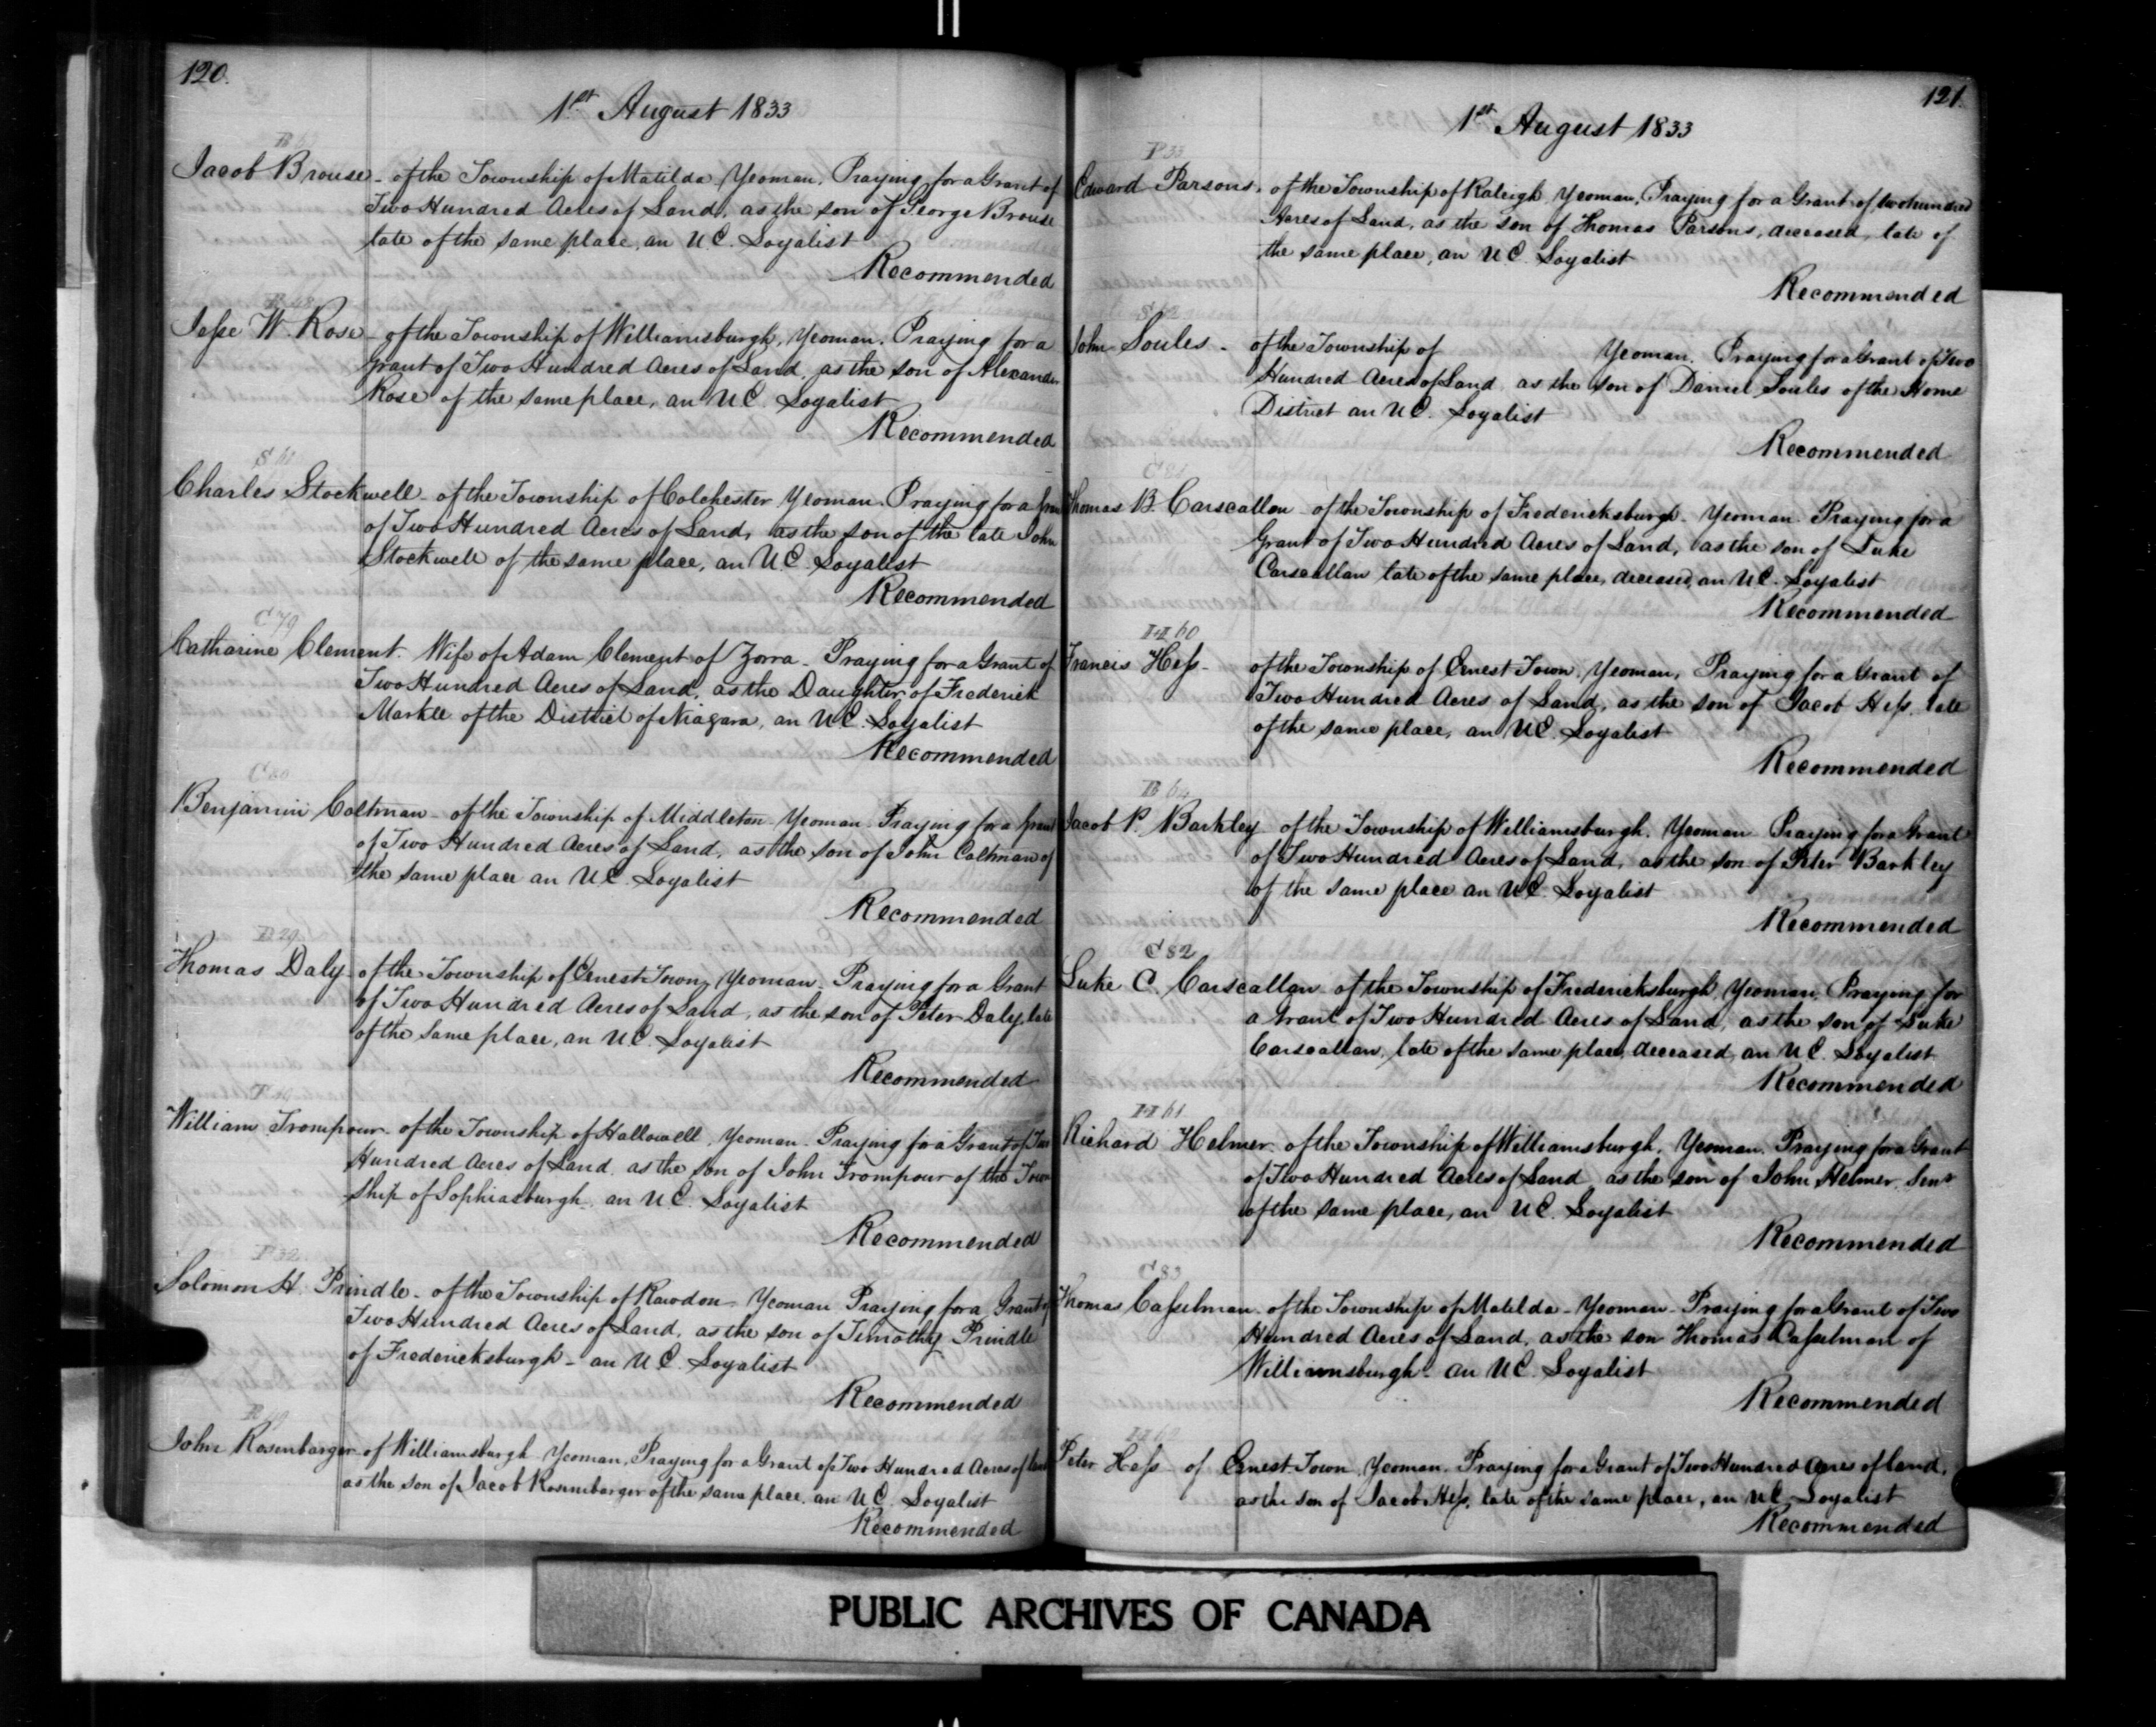 120.
1st August 1833
Jacob Brouse - of the Township of Matilda Yeoman. Praying for a Grant of
Two Hundred Acres of Land, as the son of George Brouse
late of the same place, an U.E. Loyalist
Recommended
Jesse W. Rose - of the Township of Williamsburgh, Yeoman. Praying for a
Grant of Two Hundred Acres of Land, as the son of Alexander
Rose of the same place, an U.E. Loyalist
Recommended
S 61
Charles Stockwell - of the Township of Colchester Yeoman. Praying for a Grant
of Two Hundred Acres of Land, as the son of the late John
Stockwell of the same place, an U.E. Loyalist
Recommended
C 79
Catharine Clement. Wife of Adam Clement of Zorra - Praying for a Grant of
Two Hundred Acres of Land, as the Daughter of Frederick
Markle of the District of Niagara, an U.E. Loyalist
Recommended
C 80
Benjamin Coltman - of the Township of Middleton - Yeoman. Praying for a Grant
of Two Hundred Acres of Land, as the son of John Coltman of
the same place an U.E. Loyalist
Recommended
D 29
Thomas Daly - of the Township of Ernest Town, Yeoman - Praying for a Grant
of Two Hundred Acres of Land, as the son of Peter Daly, late
of the same place, an U.E. Loyalist
Recommended
William Trompour - of the Township of Hallowell, Yeoman - Praying for a Grant of Two
Hundred Acres of Land, as the son of John Trompour of the Town
ship of Sophiasburgh, an U.E. Loyalist
Recommended
P 32
Solomon H. Prindle - of the Township of Rawdon - Yeoman Praying for a Grant of
Two Hundred Acres of Land, as the son of Timothy Prindle
of Fredericksburgh - an U.E. Loyalist
Recommended
John Rosenbarger - of Williamsburgh Yeoman, Praying for a Grant of Two Hundred Acres of Land
as the son of Jacob Rosenbarger of the same place, an U.E. Loyalist
Recommended
121.
1st August 1833
P 33
Edward Parsons. of the Township of Raleigh Yeoman, Praying for a Grant of two hundred
Acres of Land, as the son of Thomas Parsons, deceased, late of
the same place, an U.E. Loyalist
Recommended
S 62
John Soules - of the Township of Yeoman. Praying for a Grant of Two
Hundred Acres of Land as the son of Daniel Soules of the Home
District an U.E. Loyalist
Recommended
C 81
Thomas B. Carscallan - of the Township of Fredericksburgh - Yeoman - Praying for a
Grant of Two Hundred Acres of Land, as the son of Luke
Carscallan late of the same place, deceased, an U.E. Loyalist
Recommended
H 60
Francis Hess - of the Township of Ernest Town, Yeoman, Praying for a Grant of
Two Hundred Acres of Land, as the son of Jacob Hess, late
of the same place, an U.E. Loyalist
Recommended
B 64
Jacob P. Barkley - of the Township of Williamsburgh, Yeoman Praying for a Grant
of Two Hundred Acres of Land, as the son of Peter Barkley
of the same place an U.E. Loyalist
Recommended
C 82
Luke C. Carscallan - of the Township of Fredericksburgh, Yeoman, Praying for
a Grant of Two Hundred Acres of Land, as the son of Luke
Carscallan, late of the same place, deceased, an U.E. Loyalist
Recommended
H 61
Richard Helmer - of the Township of Williamsburgh, Yeoman. Praying for a Grant
of Two Hundred Acres of Land as the son of John Helmer Senr
of the same place, an U.E. Loyalist
Recommended
C 83
Thomas Casselman - of the Township of Matilda - Yeoman - Praying for a Grant of Two
Hundred Acres of Land, as the son Thomas Casselman of
Williamsburgh - an U.E. Loyalist
Recommended
H 62
Peter Hess - of Ernest Town, Yeoman. Praying for a Grant of Two Hundred Acres of Land,
as the son of Jacob Hess, late of the same place, an U.E. Loyalist
Recommended
PUBLIC ARCHIVES OF CANADA